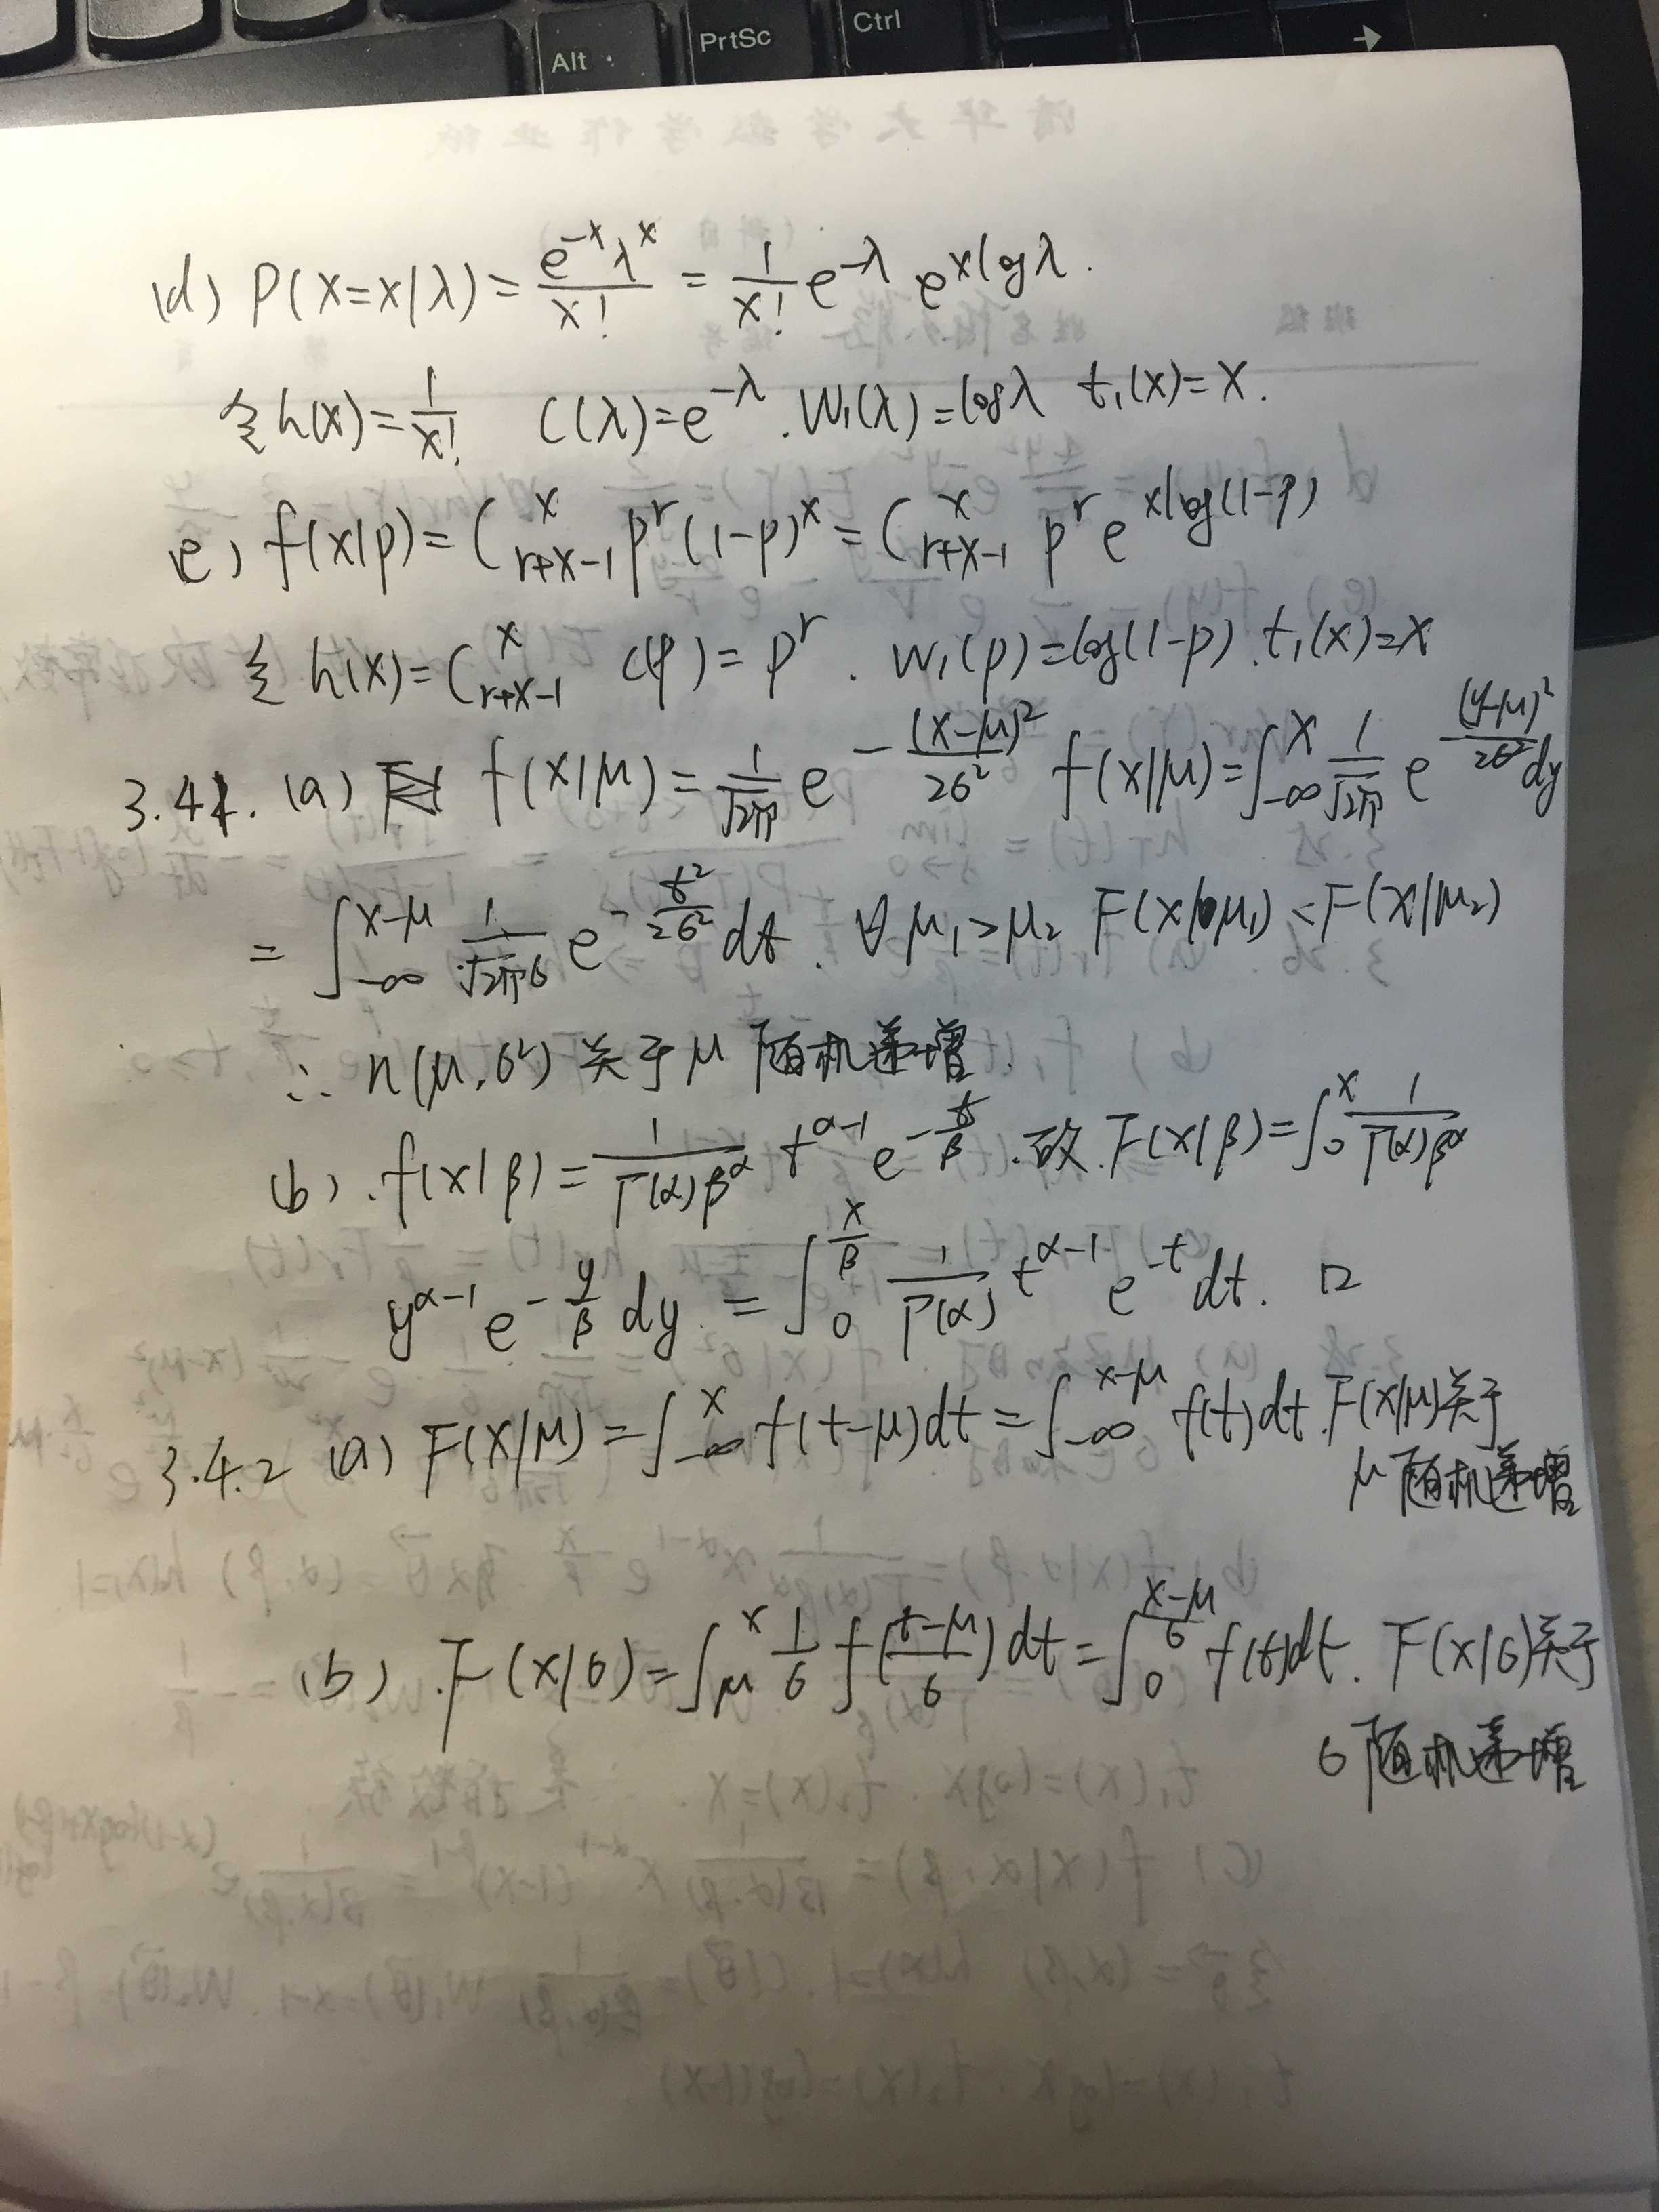 Alt
PrtSc
Ctrl
(d) P(X=x|λ) = \frac{e^{-x}λ^x}{x!} = \frac{1}{x!} e^{-λ} e^{x log λ}.
令 h(x) = \frac{1}{x!} C(λ) = e^{-λ}. W_1(λ) = log λ t_1(x) = x.
(e) f(x|p) = C_{r+x-1}^{x} p^r (1-p)^x = C_{r+x-1}^{x} p^r e^{x log(1-p)}
令 h(x) = C_{r+x-1}^{x} C(p) = p^r. W_1(p) = log(1-p). t_1(x) = x
3.41. (a) f(x|μ) = \frac{1}{\sqrt{2π}} e^{-\frac{(x-μ)^2}{2σ^2}} f(x|μ) = ∫_{-∞}^{x} \frac{1}{\sqrt{2π}} e^{-\frac{(y-μ)^2}{2σ^2}} dy
= ∫_{-∞}^{x-μ} \frac{1}{\sqrt{2π}σ} e^{-\frac{t^2}{2σ^2}} dt. ∀ μ_1 > μ_2 F(x|μ_1) < F(x|μ_2)
∴ n(μ, σ^2) 关于 μ 随机递增.
(b). f(x|β) = \frac{1}{Γ(α)β^α} t^{α-1} e^{-\frac{t}{β}}. 故. F(x|β) = ∫_0^x \frac{1}{Γ(α)β^α}
y^{α-1} e^{-\frac{y}{β}} dy = ∫_0^{\frac{x}{β}} \frac{1}{Γ(α)} t^{α-1} e^{-t} dt. □
3.4.2 (a) F(x|μ) = ∫_{-∞}^{x} f(t-μ)dt = ∫_{-∞}^{x-μ} f(t)dt. F(x|μ)关于
μ 随机递增
(b). F(x|σ) = ∫_μ^x \frac{1}{σ} f(\frac{t-μ}{σ}) dt = ∫_0^{\frac{x-μ}{σ}} f(t)dt. F(x|σ)关于
σ 随机递增